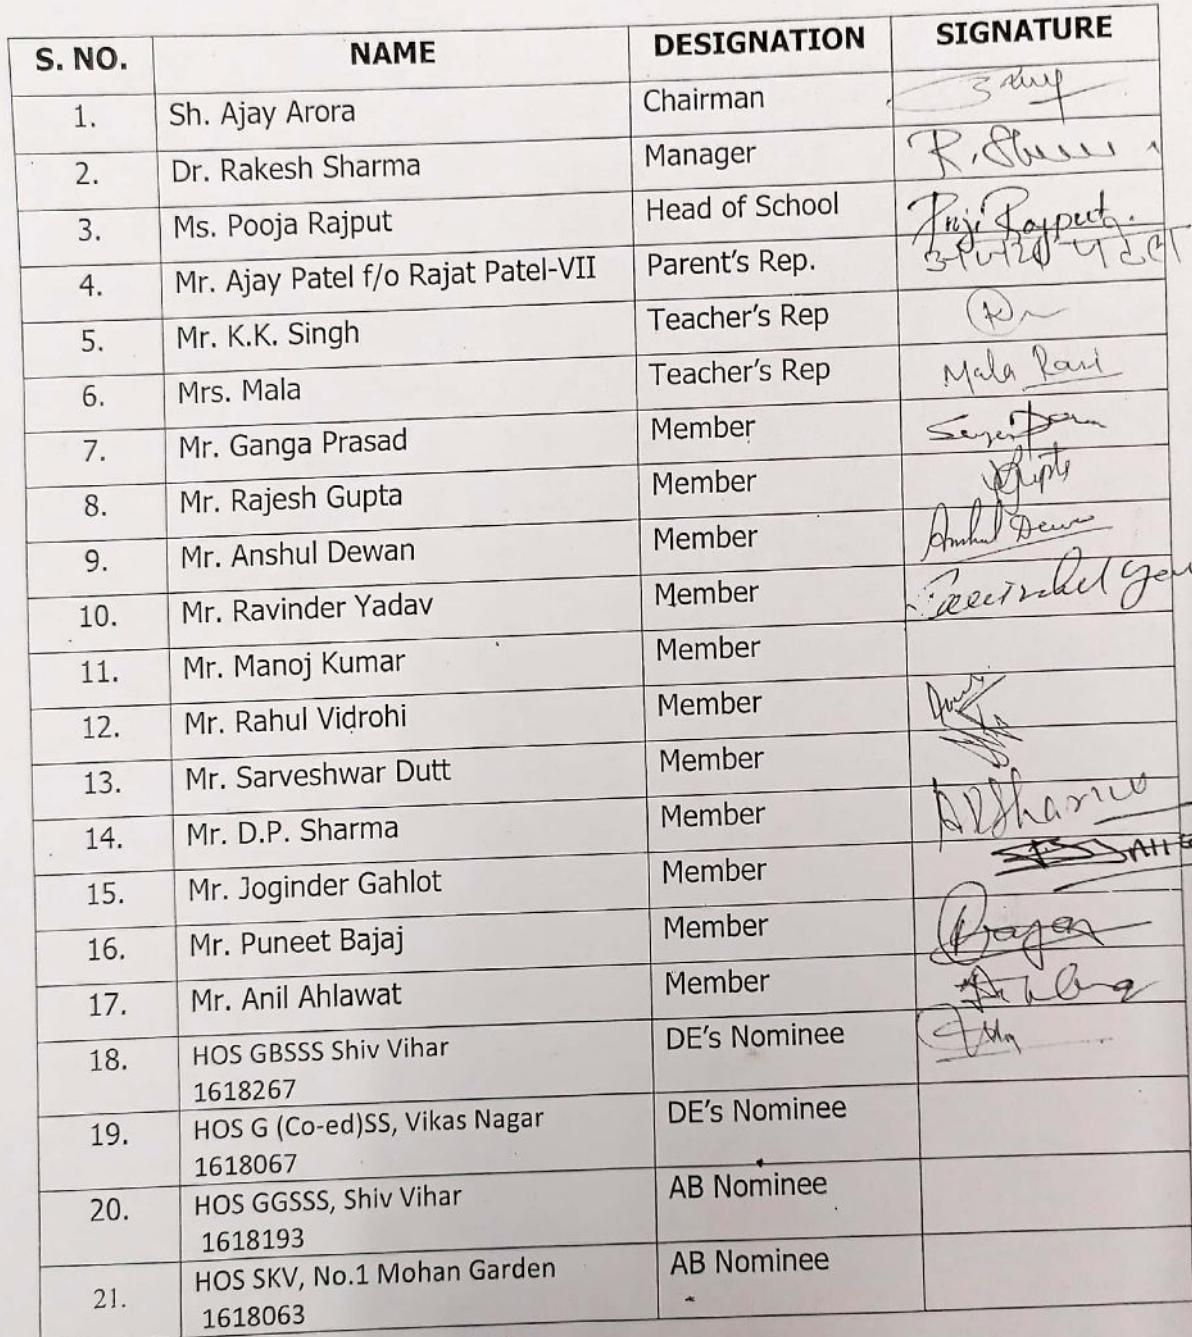 S. NO. NAME DESIGNATION SIGNATURE
1. Sh. Ajay Arora Chairman
2. Dr. Rakesh Sharma Manager
3. Ms. Pooja Rajput Head of School
4. Mr. Ajay Patel f/o Rajat Patel-VII Parent's Rep.
5. Mr. K.K. Singh Teacher's Rep
6. Mrs. Mala Teacher's Rep Mala Rani
7. Mr. Ganga Prasad Member
8. Mr. Rajesh Gupta Member
9. Mr. Anshul Dewan Member
10. Mr. Ravinder Yadav Member
11. Mr. Manoj Kumar Member
12. Mr. Rahul Vidrohi Member
13. Mr. Sarveshwar Dutt Member
14. Mr. D.P. Sharma Member
15. Mr. Joginder Gahlot Member
16. Mr. Puneet Bajaj Member
17. Mr. Anil Ahlawat Member
18. HOS GBSSS Shiv Vihar DE's Nominee
1618267
19. HOS G (Co-ed)SS, Vikas Nagar DE's Nominee
1618067
20. HOS GGSSS, Shiv Vihar AB Nominee
1618193
21. HOS SKV, No.1 Mohan Garden AB Nominee
1618063